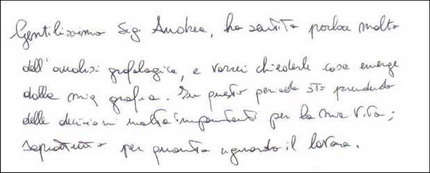 Gentilissimo Sig. Andrea, ho sentito parlare molto
dell'analisi grafologica, e vorrei chiederle cosa emerge
dalla mia grafia. In questo periodo sto prendendo
delle decisioni molto importanti per la mia vita;
soprattutto per quanto riguarda il lavoro.